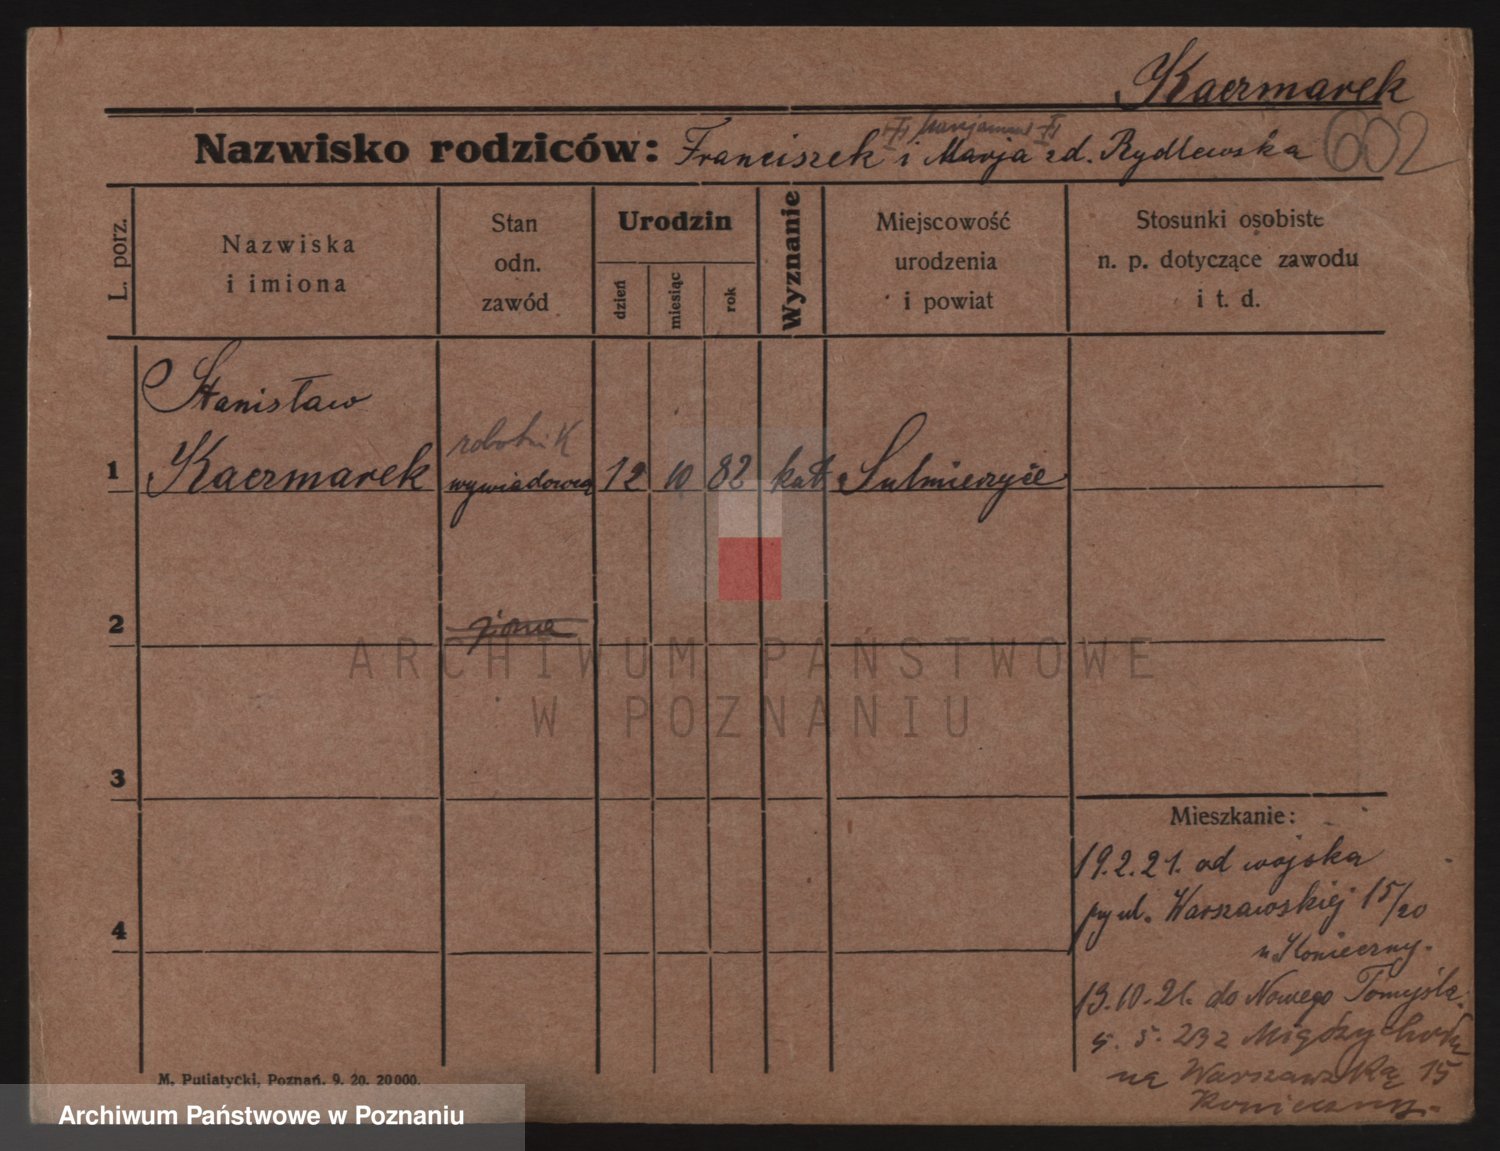 Kaczmarek
Nazwisko rodziców: Franciszek i Marja zd. Rydlewska 602
L. porz.
Nazwiska
i imiona
Stan
odn.
zawód
Urodzin
dzień
miesiąc
rok
Wyznanie
Miejscowość
urodzenia
i powiat
Stosunki osobiste
n. p. dotyczące zawodu
i t. d.
Stanisław
robotnik
1 Kaczmarek wywiadowca 12 10 82 kat Sulmierzyce
2 żona
ARCHIWUM PAŃSTWOWE
W POZNANIU
3
Mieszkanie:
19.2.21. od wojska
przy ul. Warszawskiej 15/20
4
u Konieczny.
13.10.21. do Nowego Tomyśla.
5. 5. 23 z Międzychodu
na Warszawską 15
Konieczny.
M. Putiatycki, Poznań. 9. 20. 20000.
Archiwum Państwowe w Poznaniu